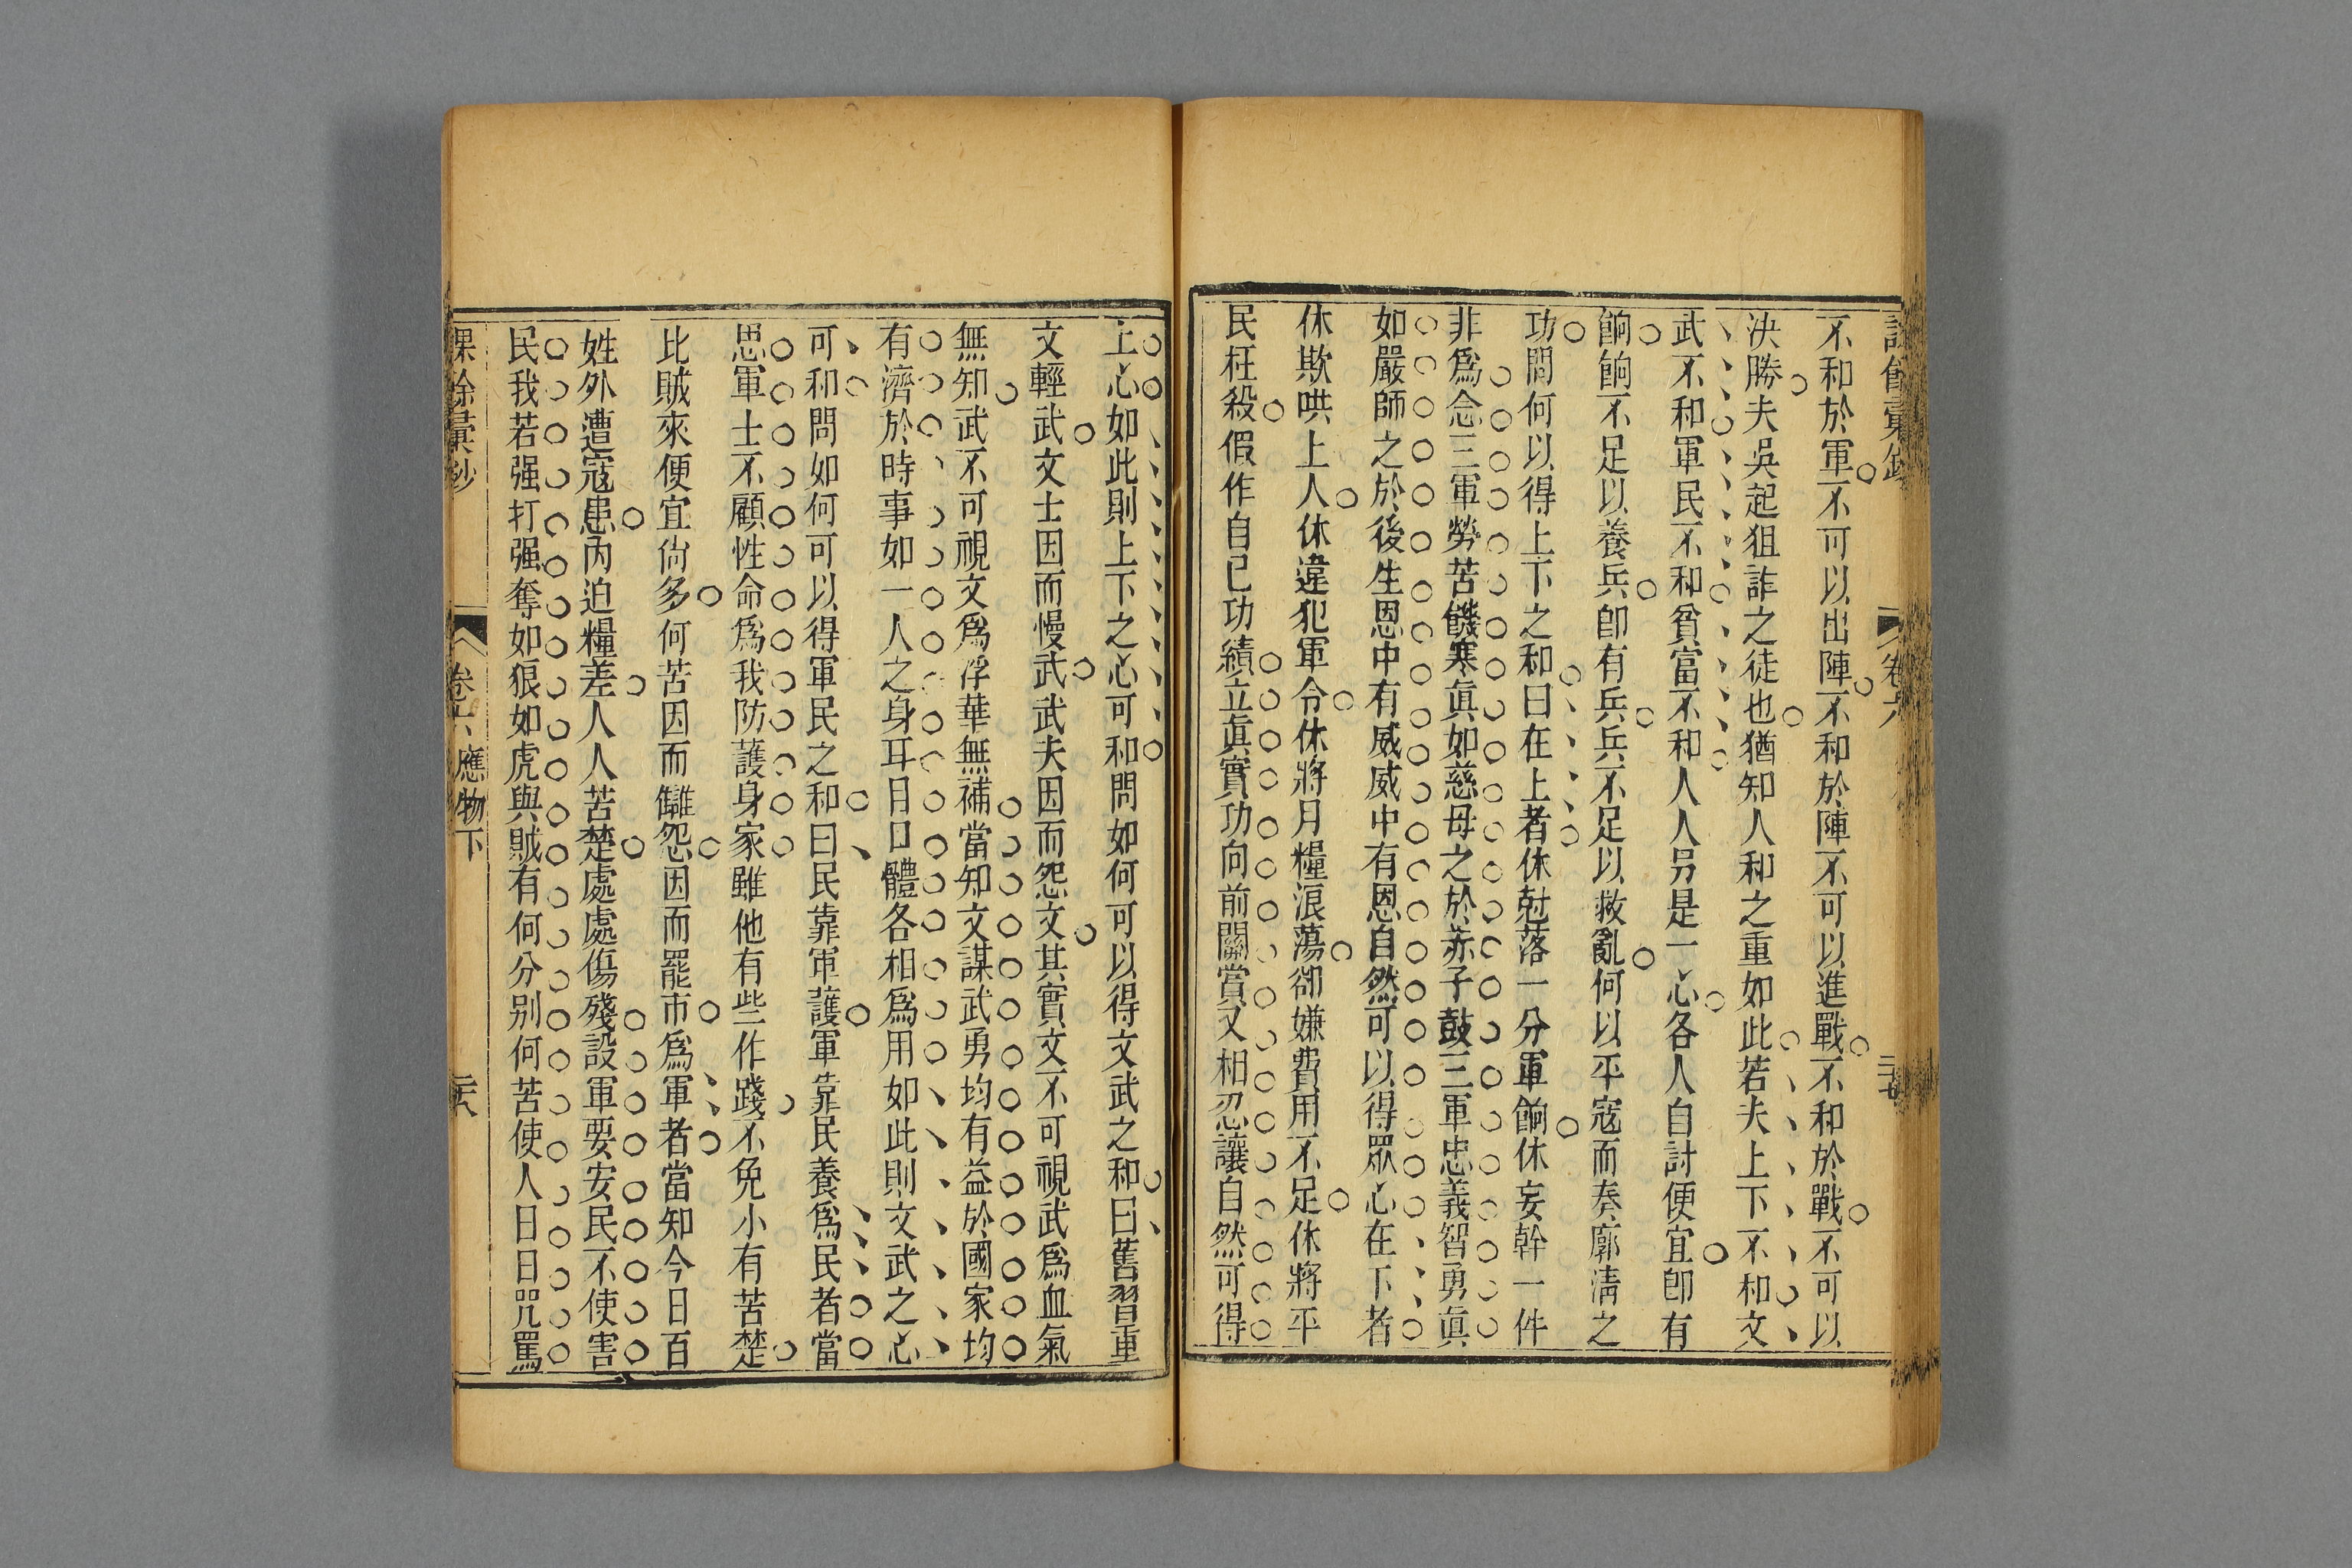 課餘彙鈔
卷六
不和於軍不可以出陣不和於陣不可以進戰不和於戰不可以
決勝夫吳起狙詐之徒也猶知人和之重如此若夫上下不和文
武不和軍民不和貧富不和人人另是一心各人自討便宜卽有
餉餉不足以養兵卽有兵兵不足以救亂何以平寇而奏廓淸之
功問何以得上下之和曰在上者休尅落一分軍餉休妄幹一件
非爲念三軍勞苦饑寒眞如慈母之於赤子鼓三軍忠義智勇眞
如嚴師之於後生恩中有威威中有恩自然可以得眾心在下者
休欺哄上人休違犯軍令休將月糧浪蕩卻嫌費用不足休將平
民枉殺假作自己功績立眞實功向前關賞又相忍讓自然可得
上心如此則上下之心可和問如何可以得文武之和曰舊習重
文輕武文士因而慢武武夫因而怨文其實文不可視武爲血氣
無知武不可視文爲浮華無補當知文謀武勇均有益於國家均
有濟於時事如一人之身耳目口體各相爲用如此則文武之心
可和問如何可以得軍民之和曰民靠軍護軍靠民養爲民者當
思軍士不顧性命爲我防護身家雖他有些作踐不免小有苦楚
比賊來便宜尙多何苦因而讎怨因而罷市爲軍者當知今日百
姓外遭寇患內迫糧差人人苦楚處處傷殘設軍要安民不使害
民我若强打强奪如狼如虎與賊有何分别何苦使人日日咒罵
課餘彙鈔
卷六 應物下
二六